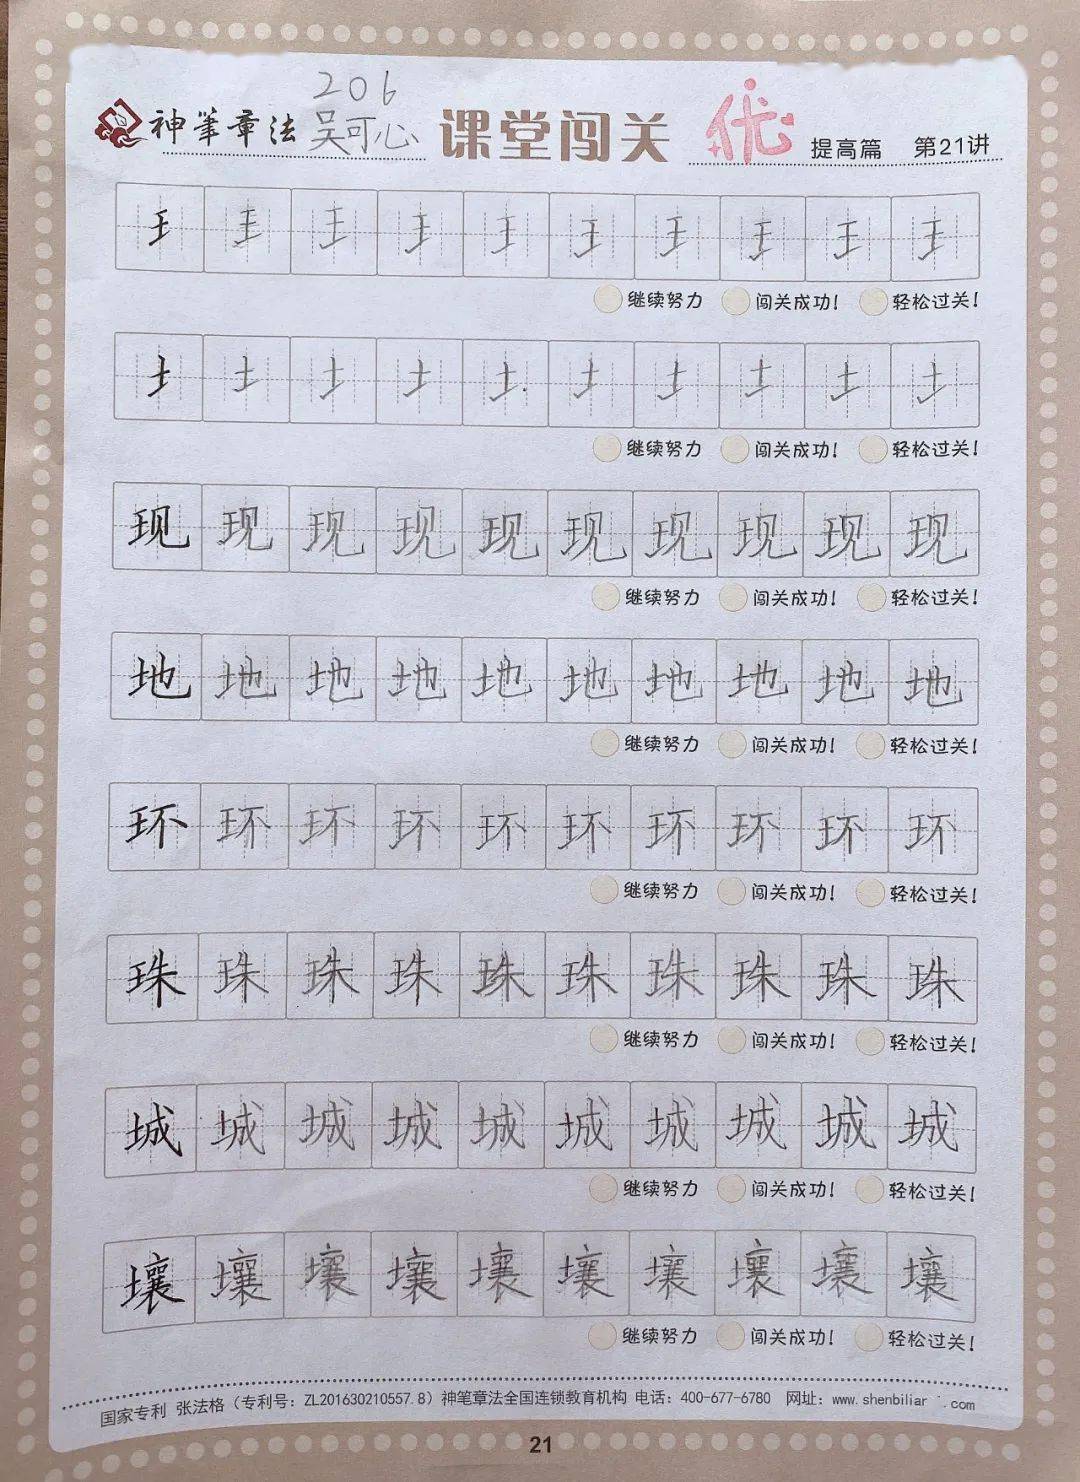 206
神笔章法 吴可心 课堂闯关 优 提高篇 第21讲
王 王 王 王 王 王 王 王 王 王
继续努力 闯关成功! 轻松过关!
土 土 土 土 土 土 土 土 土 土
继续努力 闯关成功! 轻松过关!
现 现 现 现 现 现 现 现 现 现
继续努力 闯关成功! 轻松过关!
地 地 地 地 地 地 地 地 地 地
继续努力 闯关成功! 轻松过关!
环 环 环 环 环 环 环 环 环 环
继续努力 闯关成功! 轻松过关!
珠 珠 珠 珠 珠 珠 珠 珠 珠 珠
继续努力 闯关成功! 轻松过关!
城 城 城 城 城 城 城 城 城 城
继续努力 闯关成功! 轻松过关!
壤 壤 壤 壤 壤 壤 壤 壤 壤 壤
继续努力 闯关成功! 轻松过关!
国家专利 张法格（专利号：ZL201630210557.8）神笔章法全国连锁教育机构 电话：400-677-6780 网址：
21